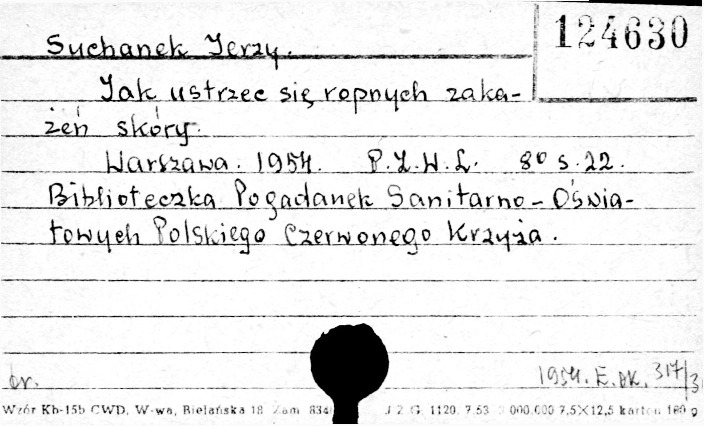 124630
Suchanek Jerzy.
Jak ustrzec się ropnych zaka-
żeń skóry.
Warszawa. 1954. P.Z.W.L. 8° s. 22.
Biblioteczka Pogadanek Sanitarno-Oświa-
towych Polskiego Czerwonego Krzyża.
br. 1954. E. dk. 317/3
Wzór Kb-15b CWD, W-wa, Bielańska 18 Zam. 834 J 2 G. 1120. 7.53 000.000 7,5×12,5 karton 180 g